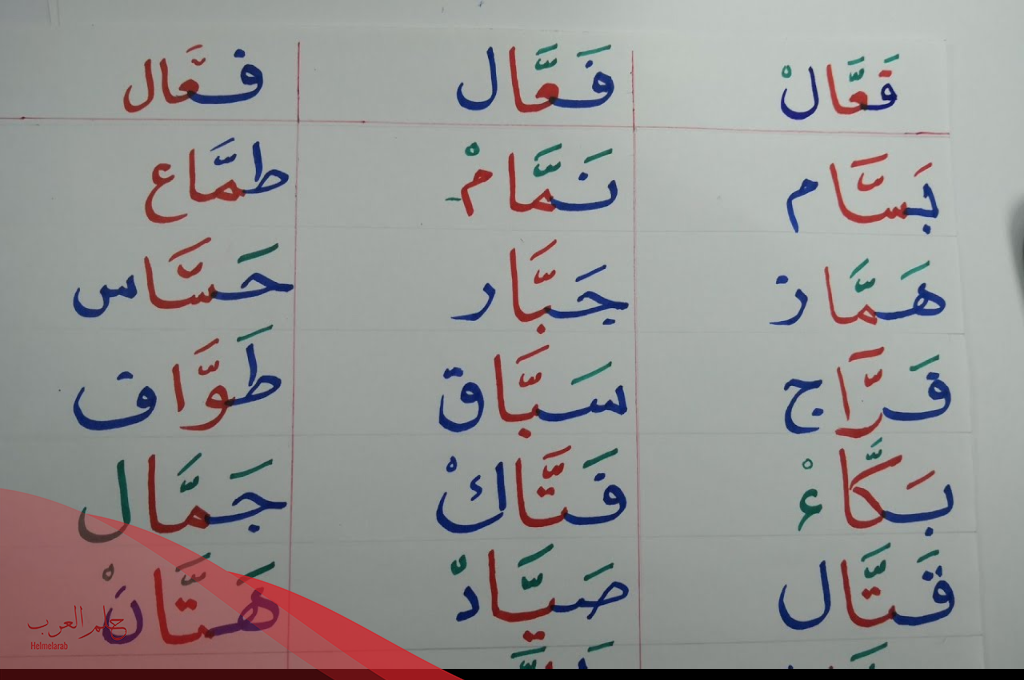 فَعَّالْ فَعَّال فعّال
بَسَّام نَمَّامْ طمَّاع
هَمَّاز جَبَّار حَسَّاس
فَرَّاج سَبَّاق طَوَّاف
بَكَّاءْ فَتَّاكْ جَمَّال
قَتَّال صَيَّاد هَتَّانْ
حلم العرب
Helmelarab